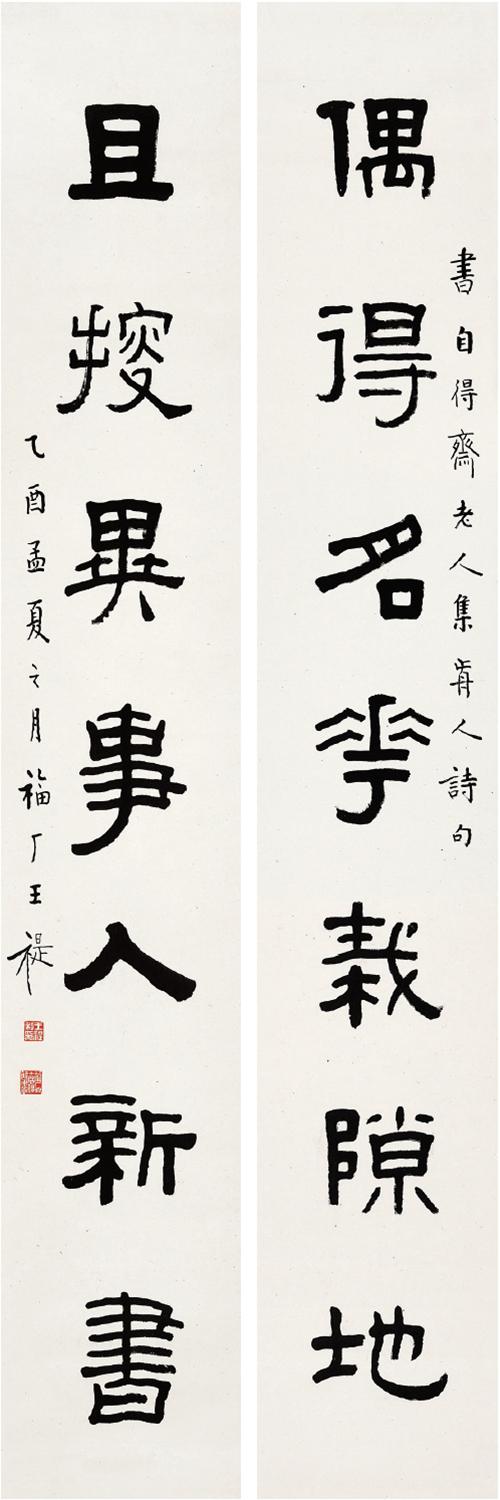 書自得齋老人集歬人詩句
偶得名花栽隙地
且搜異事入新書
乙酉孟夏之月福厂王禔